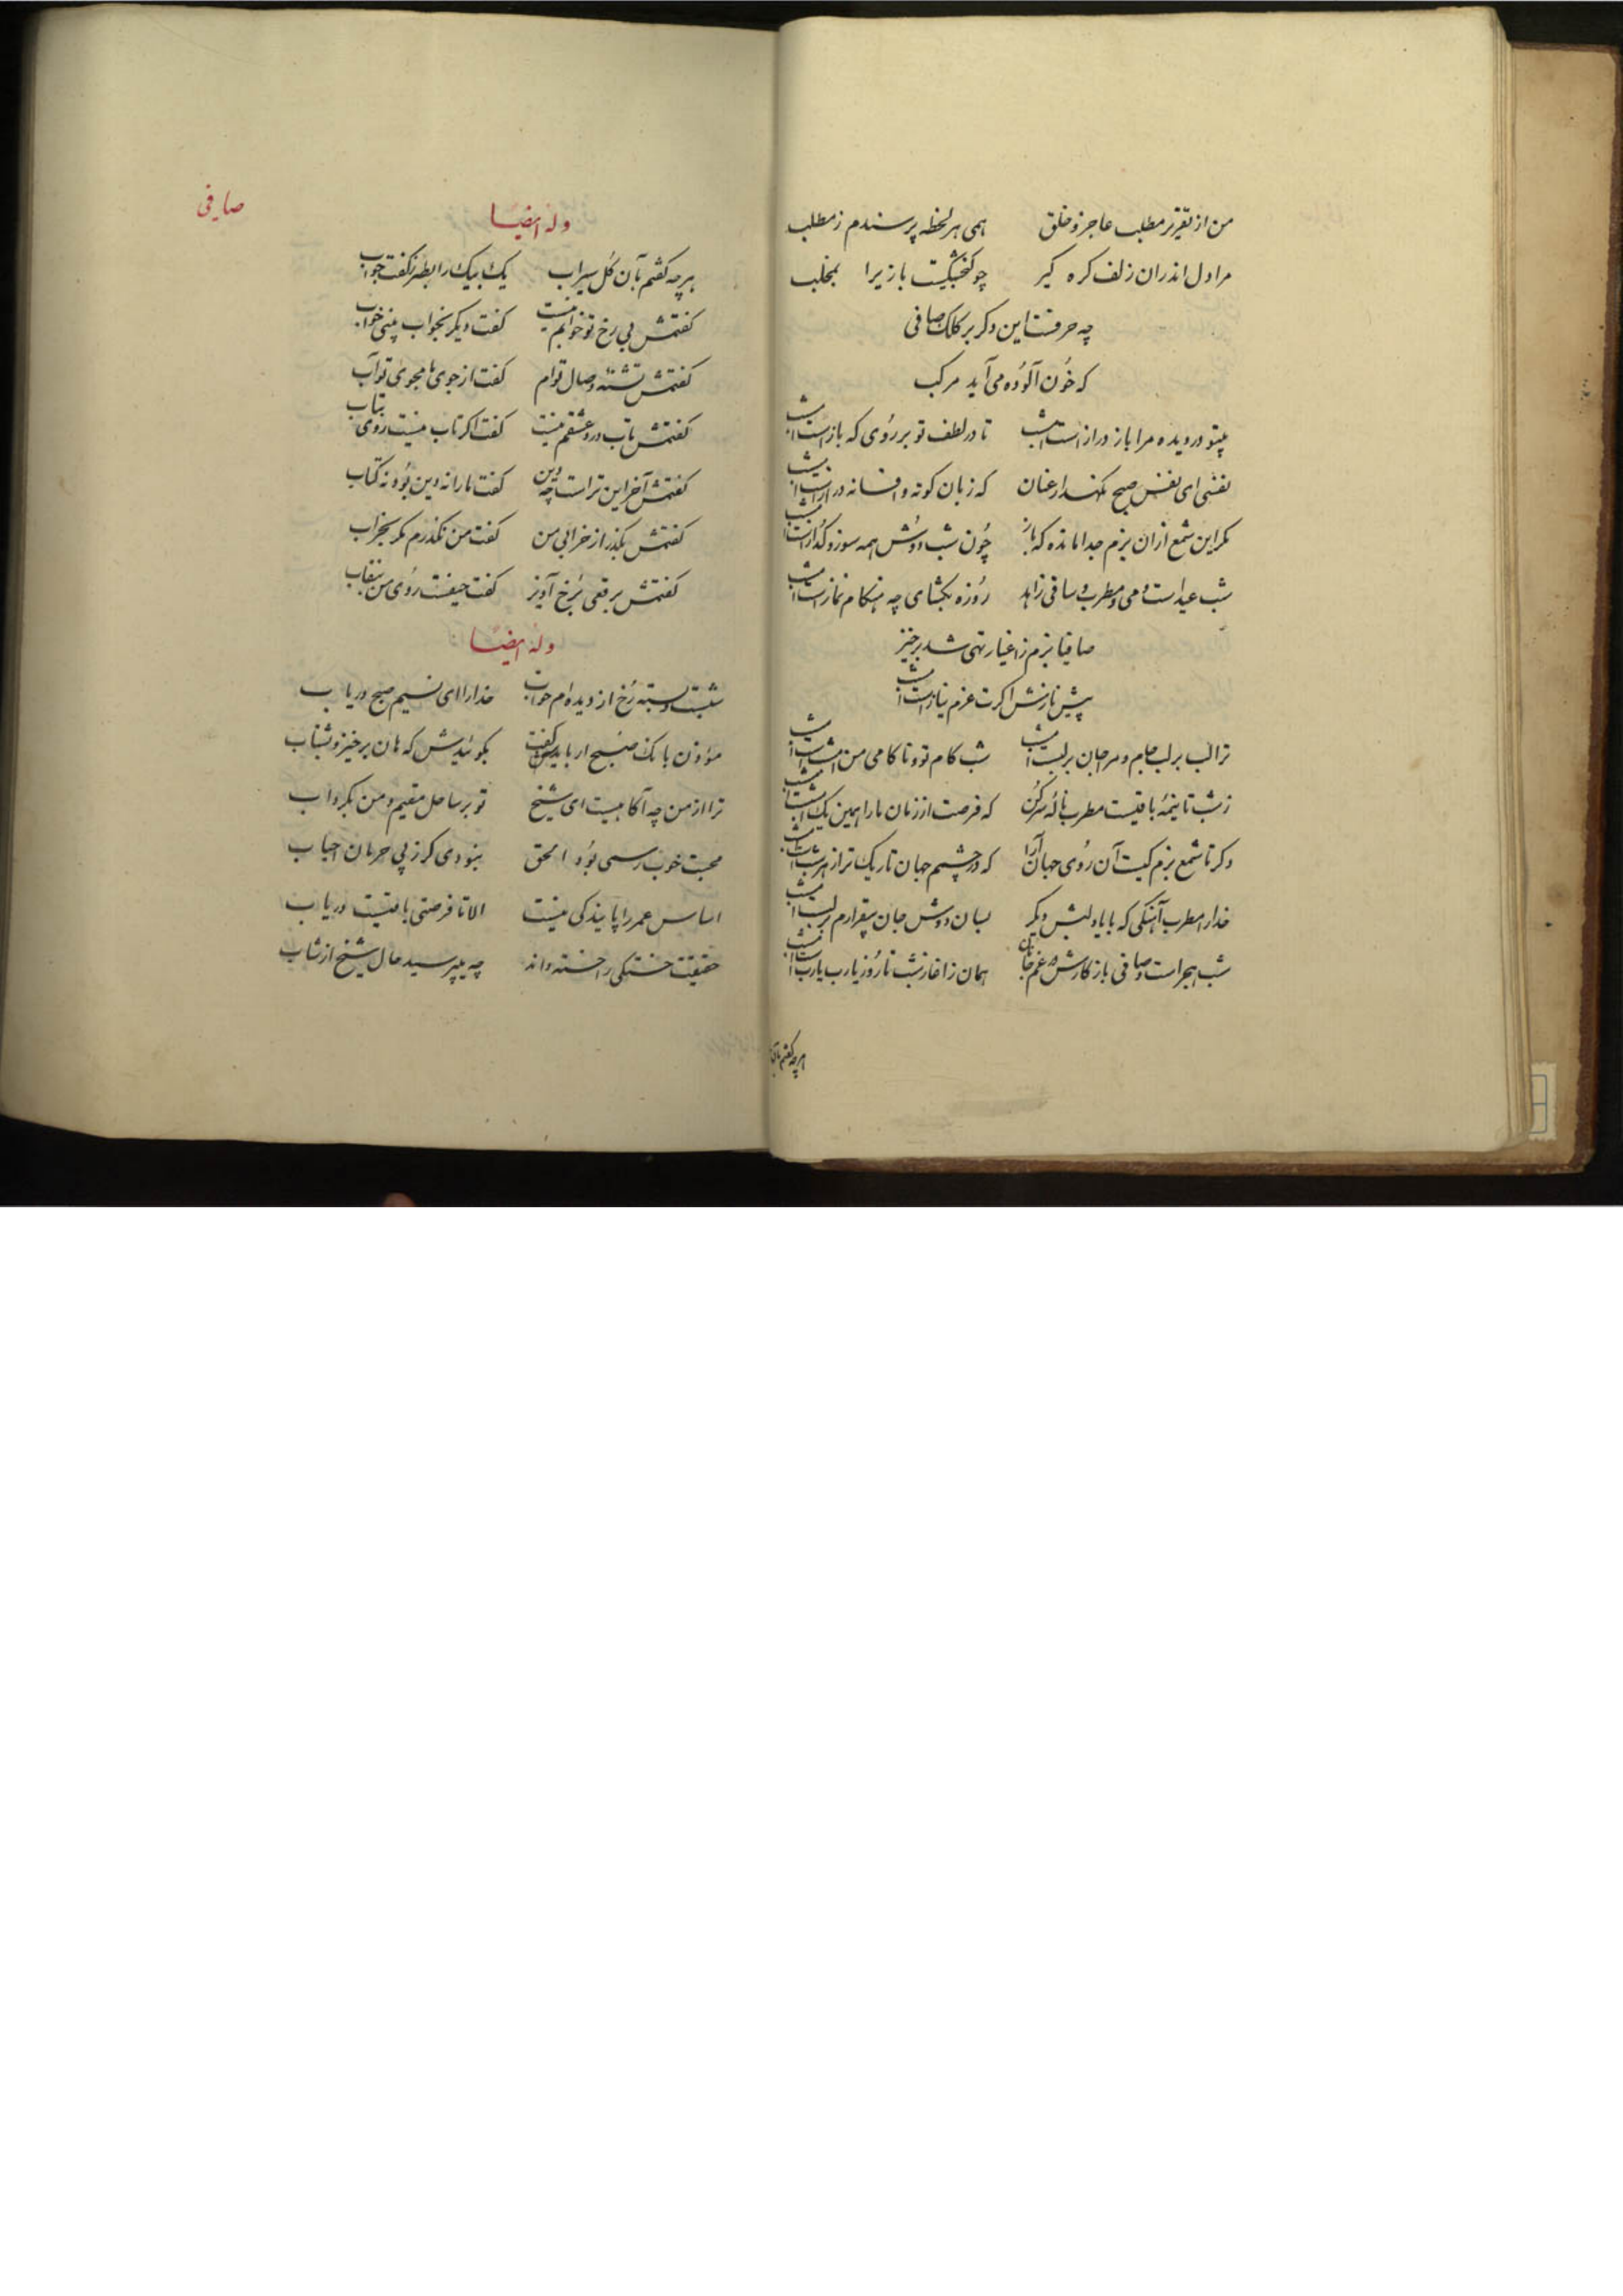 من از تقریر مطلب عاجز و خلق همی هر لحظه پرسندم ز مطلب
مرا دل اندران زلف کره کیر چو کنجشکیست باز یرا بمخلب
چه حرفست این دکر بر کلک صافی
که خون آلوده می آید مرکب
بیتو در دیده مرا باز دراز است امشب تا در لطف تو بر روی که باز است امشب
نفسی ای نفس صبح نکهدار عنان که زبان کوته و افسانه دراز است امشب
مکر این شمع ازان بزم جدا مانده که باز چون شب دوش همه سوز و کداز است امشب
شب عید است و می و مطرب و ساقی زاهد روزه بکشای چه هنکام نماز است امشب
صافیا بزم ز اغیار تهی شد برخیز
پیش نازش اکرت عزم نیاز است امشب
ترا لب بر لب جام و مرا جان بر لبست امشب شب کام تو و ناکامی من امشبست امشب
ز شب تا نیمهٔ باقیست مطرب نالهٔ سر کن که فرصت از زمان ما را همین یک شبست امشب
دکر تا شمع بزم کیست آن روی جهان آرا که در چشمم جهان تاریک تر از هر شبست امشب
خدا را مطرب آهنکی که با یاد لبش دیکر بسان دوش جان بیقرارم بر لبست امشب
شب هجر است و صافی باز کارش در غم جانان همان ز اغاز شب تا روز یارب یاربست امشب
هر چه کفتم بآن
صافی
وله ایضا
هر چه کفتم بآن کل سیراب یک بیک را بطنز کفت جواب
کفتمش بی رخ تو خوابم نیست کفت دیکر بخواب بینی خواب
کفتمش تشنهٔ وصال توام کفت از جوی ما مجوی تو آب
کفتمش تاب درد عشقم نیست کفت اکر تاب نیست روی بتاب
کفتمش آخر این تراست چه دین کفت ما را نه دین بود نه کتاب
کفتمش بکذر از خرابی من کفت من نکذرم مکر بخراب
کفتمش برقعی برخ آویز کفت حیفست روی من بنقاب
وله ایضا
شبست و بسته رخ از دیده ام خواب خدا را ای نسیم صبح دریاب
مؤذن بانک صبح ار بایدش کفت بکوئیدش که هان برخیز و بشتاب
ترا از من چه آکاهیست ای شیخ تو بر ساحل مقیم و من بکرداب
محبت خوب رسمی بود الحق نبودی کر ز پی حرمان احباب
اساس عمر را پایندکی نیست الا تا فرصتی باقیست دریاب
حقیقت خستکی را خسته داند چه میپرسید حال شیخ از شاب